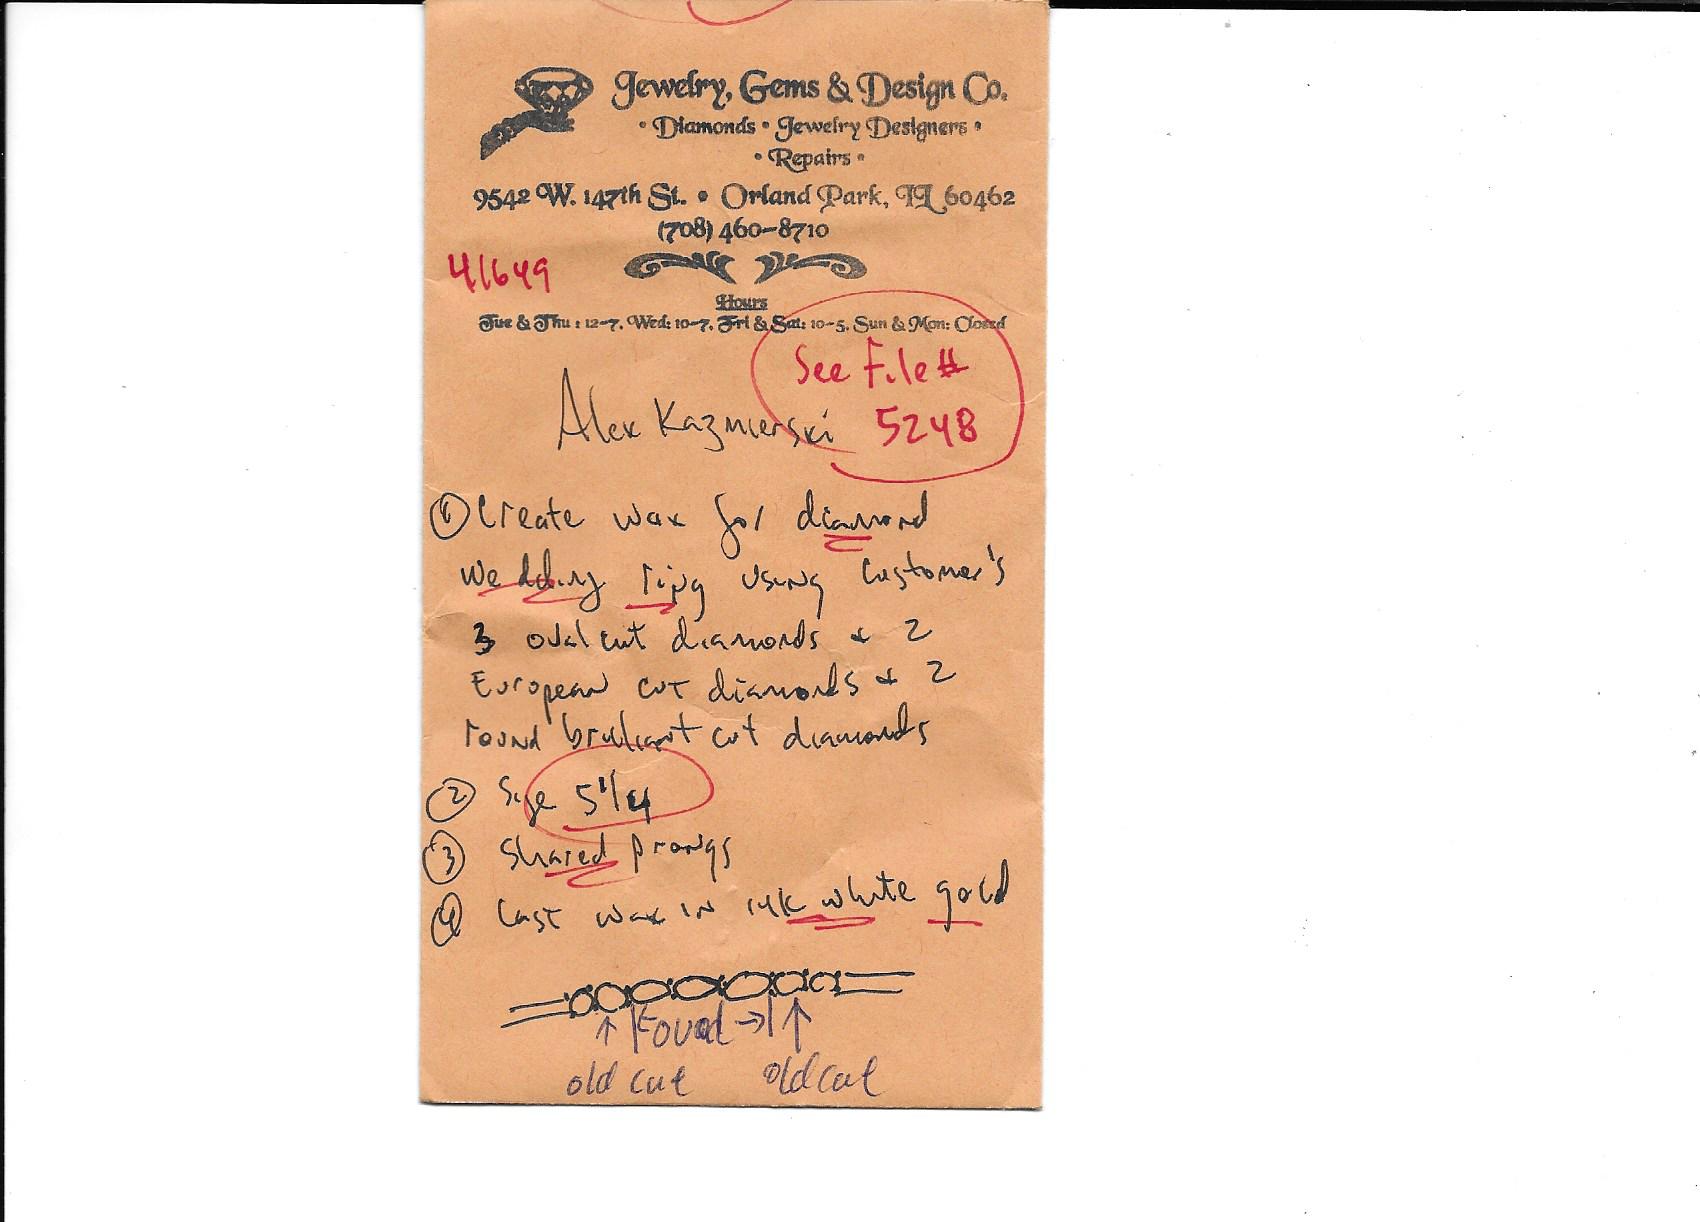 Jewelry, Gems & Design Co.
• Diamonds • Jewelry Designers •
• Repairs •
9542 W. 147th St. • Orland Park, IL 60462
(708) 460-8710
41649
Hours
Tue & Thu : 12-7, Wed: 10-7, Fri & Sat: 10-5, Sun & Mon: Closed
See File #
5248
Alex Kazmierski
① Create wax for diamond
wedding ring using customer's
3 oval cut diamonds + 2
European cut diamonds + 2
round brilliant cut diamonds
② Size 5 1/4
③ Shared prongs
④ Cast wax in 14K white gold
↑ → ↑
old cut old cut